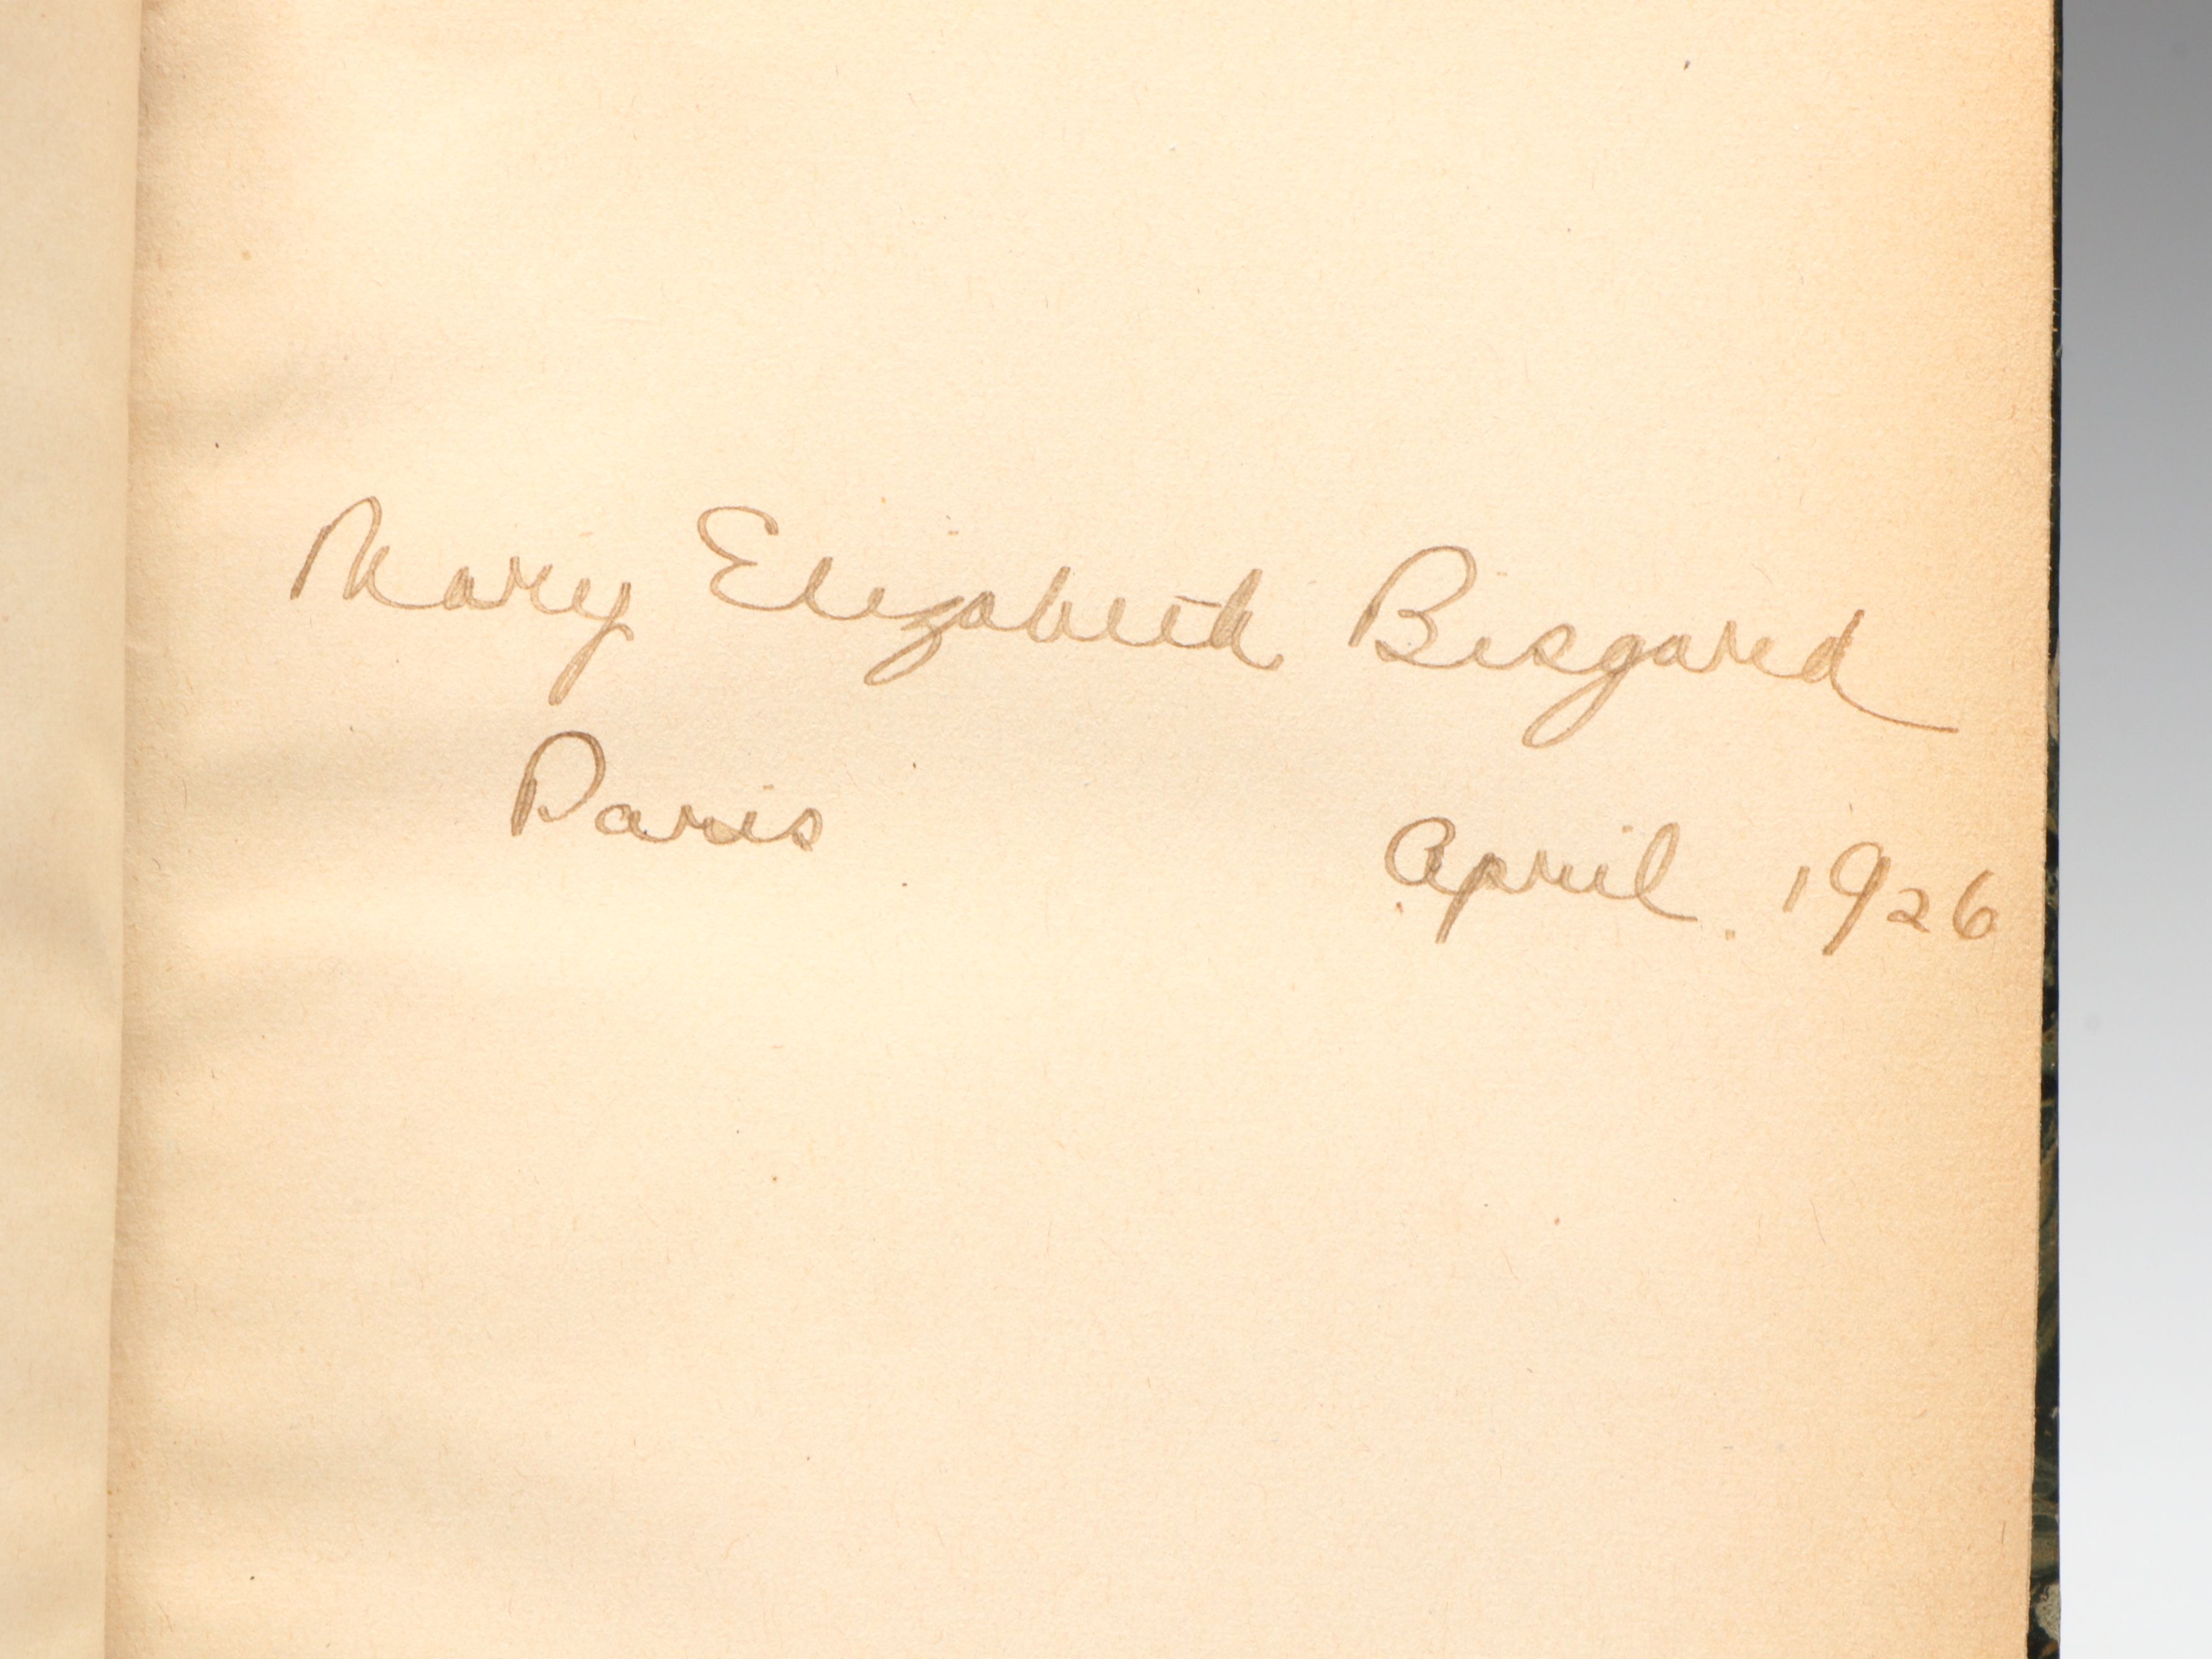 Mary Elizabeth Bisgard
Paris April. 1926